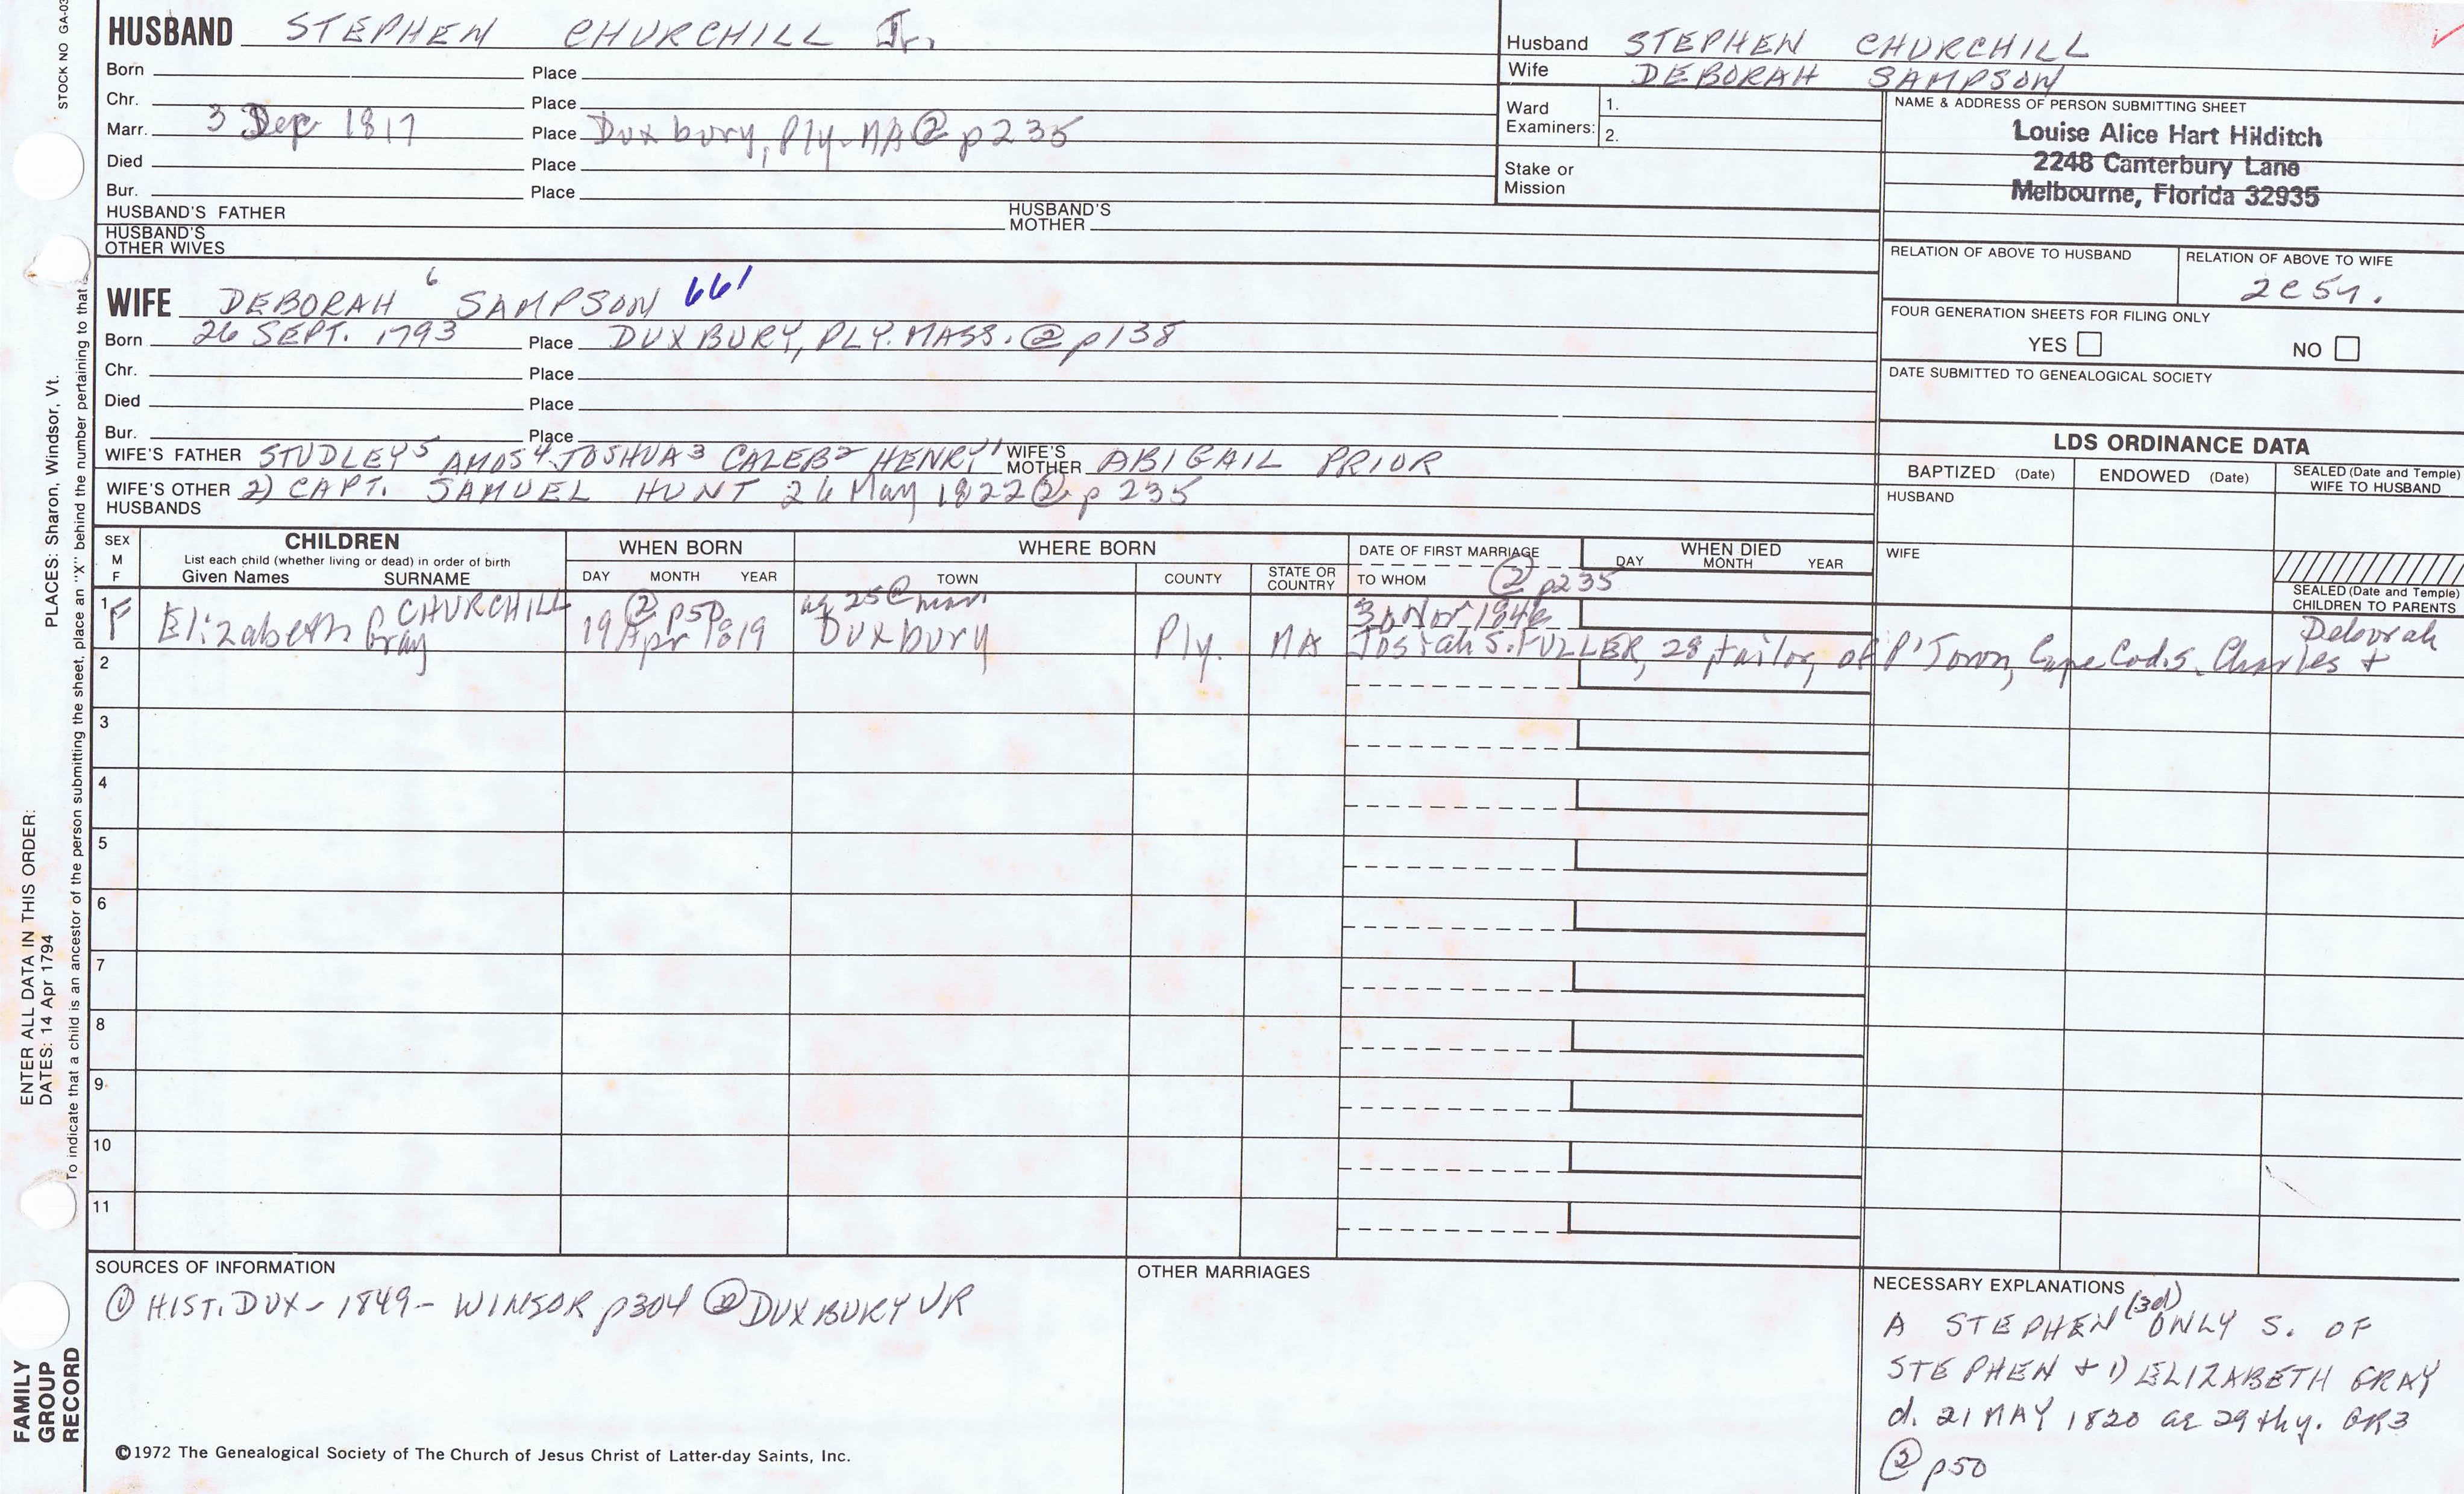 HUSBAND STEPHEN CHURCHILL Jr.
Born Place
Chr. Place
Marr. 3 Dec 1817 Place Duxbury, Ply. MA ② p235
Died Place
Bur. Place
HUSBAND'S FATHER HUSBAND'S MOTHER
HUSBAND'S OTHER WIVES
Husband STEPHEN CHURCHILL
Wife DEBORAH SAMPSON
Ward Examiners: 1.
2.
Stake or Mission
NAME & ADDRESS OF PERSON SUBMITTING SHEET
Louise Alice Hart Hilditch
2248 Canterbury Lane
Melbourne, Florida 32935
RELATION OF ABOVE TO HUSBAND RELATION OF ABOVE TO WIFE
FOUR GENERATION SHEETS FOR FILING ONLY
YES NO
DATE SUBMITTED TO GENEALOGICAL SOCIETY
WIFE DEBORAH 6 SAMPSON 661
Born 26 SEPT. 1793 Place DUXBURY, PLY. MASS. ② p138
Chr. Place
Died Place
Bur. Place
WIFE'S FATHER STUDLEY5 AMOS4 JOSHUA3 CALEB2 HENRY1 WIFE'S MOTHER ABIGAIL PRIOR
WIFE'S OTHER HUSBANDS 2) CAPT. SAMUEL HUNT 26 May 1822 ② p 235
LDS ORDINANCE DATA
BAPTIZED (Date) ENDOWED (Date) SEALED (Date and Temple) WIFE TO HUSBAND
HUSBAND
WIFE
SEALED (Date and Temple) CHILDREN TO PARENTS
SEX M F
CHILDREN
List each child (whether living or dead) in order of birth
Given Names SURNAME
WHEN BORN
DAY MONTH YEAR
WHERE BORN
TOWN COUNTY STATE OR COUNTRY
DATE OF FIRST MARRIAGE
TO WHOM ② p235
WHEN DIED
DAY MONTH YEAR
1 F Elizabeth Gray CHURCHILL ② p50 19 Apr 1819 ag 25 @ marr Duxbury Ply. MA 30 Nov 1846
Josiah S. FULLER, 28, tailor, of P'Town, Cape Cod, s. Charles + Deborah
2
3
4
5
6
7
8
9
10
11
SOURCES OF INFORMATION
① HIST. DUX - 1849 - WINSOR p304 ② DUXBURY VR
OTHER MARRIAGES
NECESSARY EXPLANATIONS
A STEPHEN (3d) ONLY S. OF
STEPHEN + 1) ELIZABETH GRAY
d. 21 MAY 1820 ae 29thy. GR3
② p50
©1972 The Genealogical Society of The Church of Jesus Christ of Latter-day Saints, Inc.
STOCK NO GA-03
PLACES: Sharon, Windsor, Vt.
ENTER ALL DATA IN THIS ORDER:
DATES: 14 Apr 1794
To indicate that a child is an ancestor of the person submitting the sheet, place an "X" behind the number pertaining to that
FAMILY
GROUP
RECORD